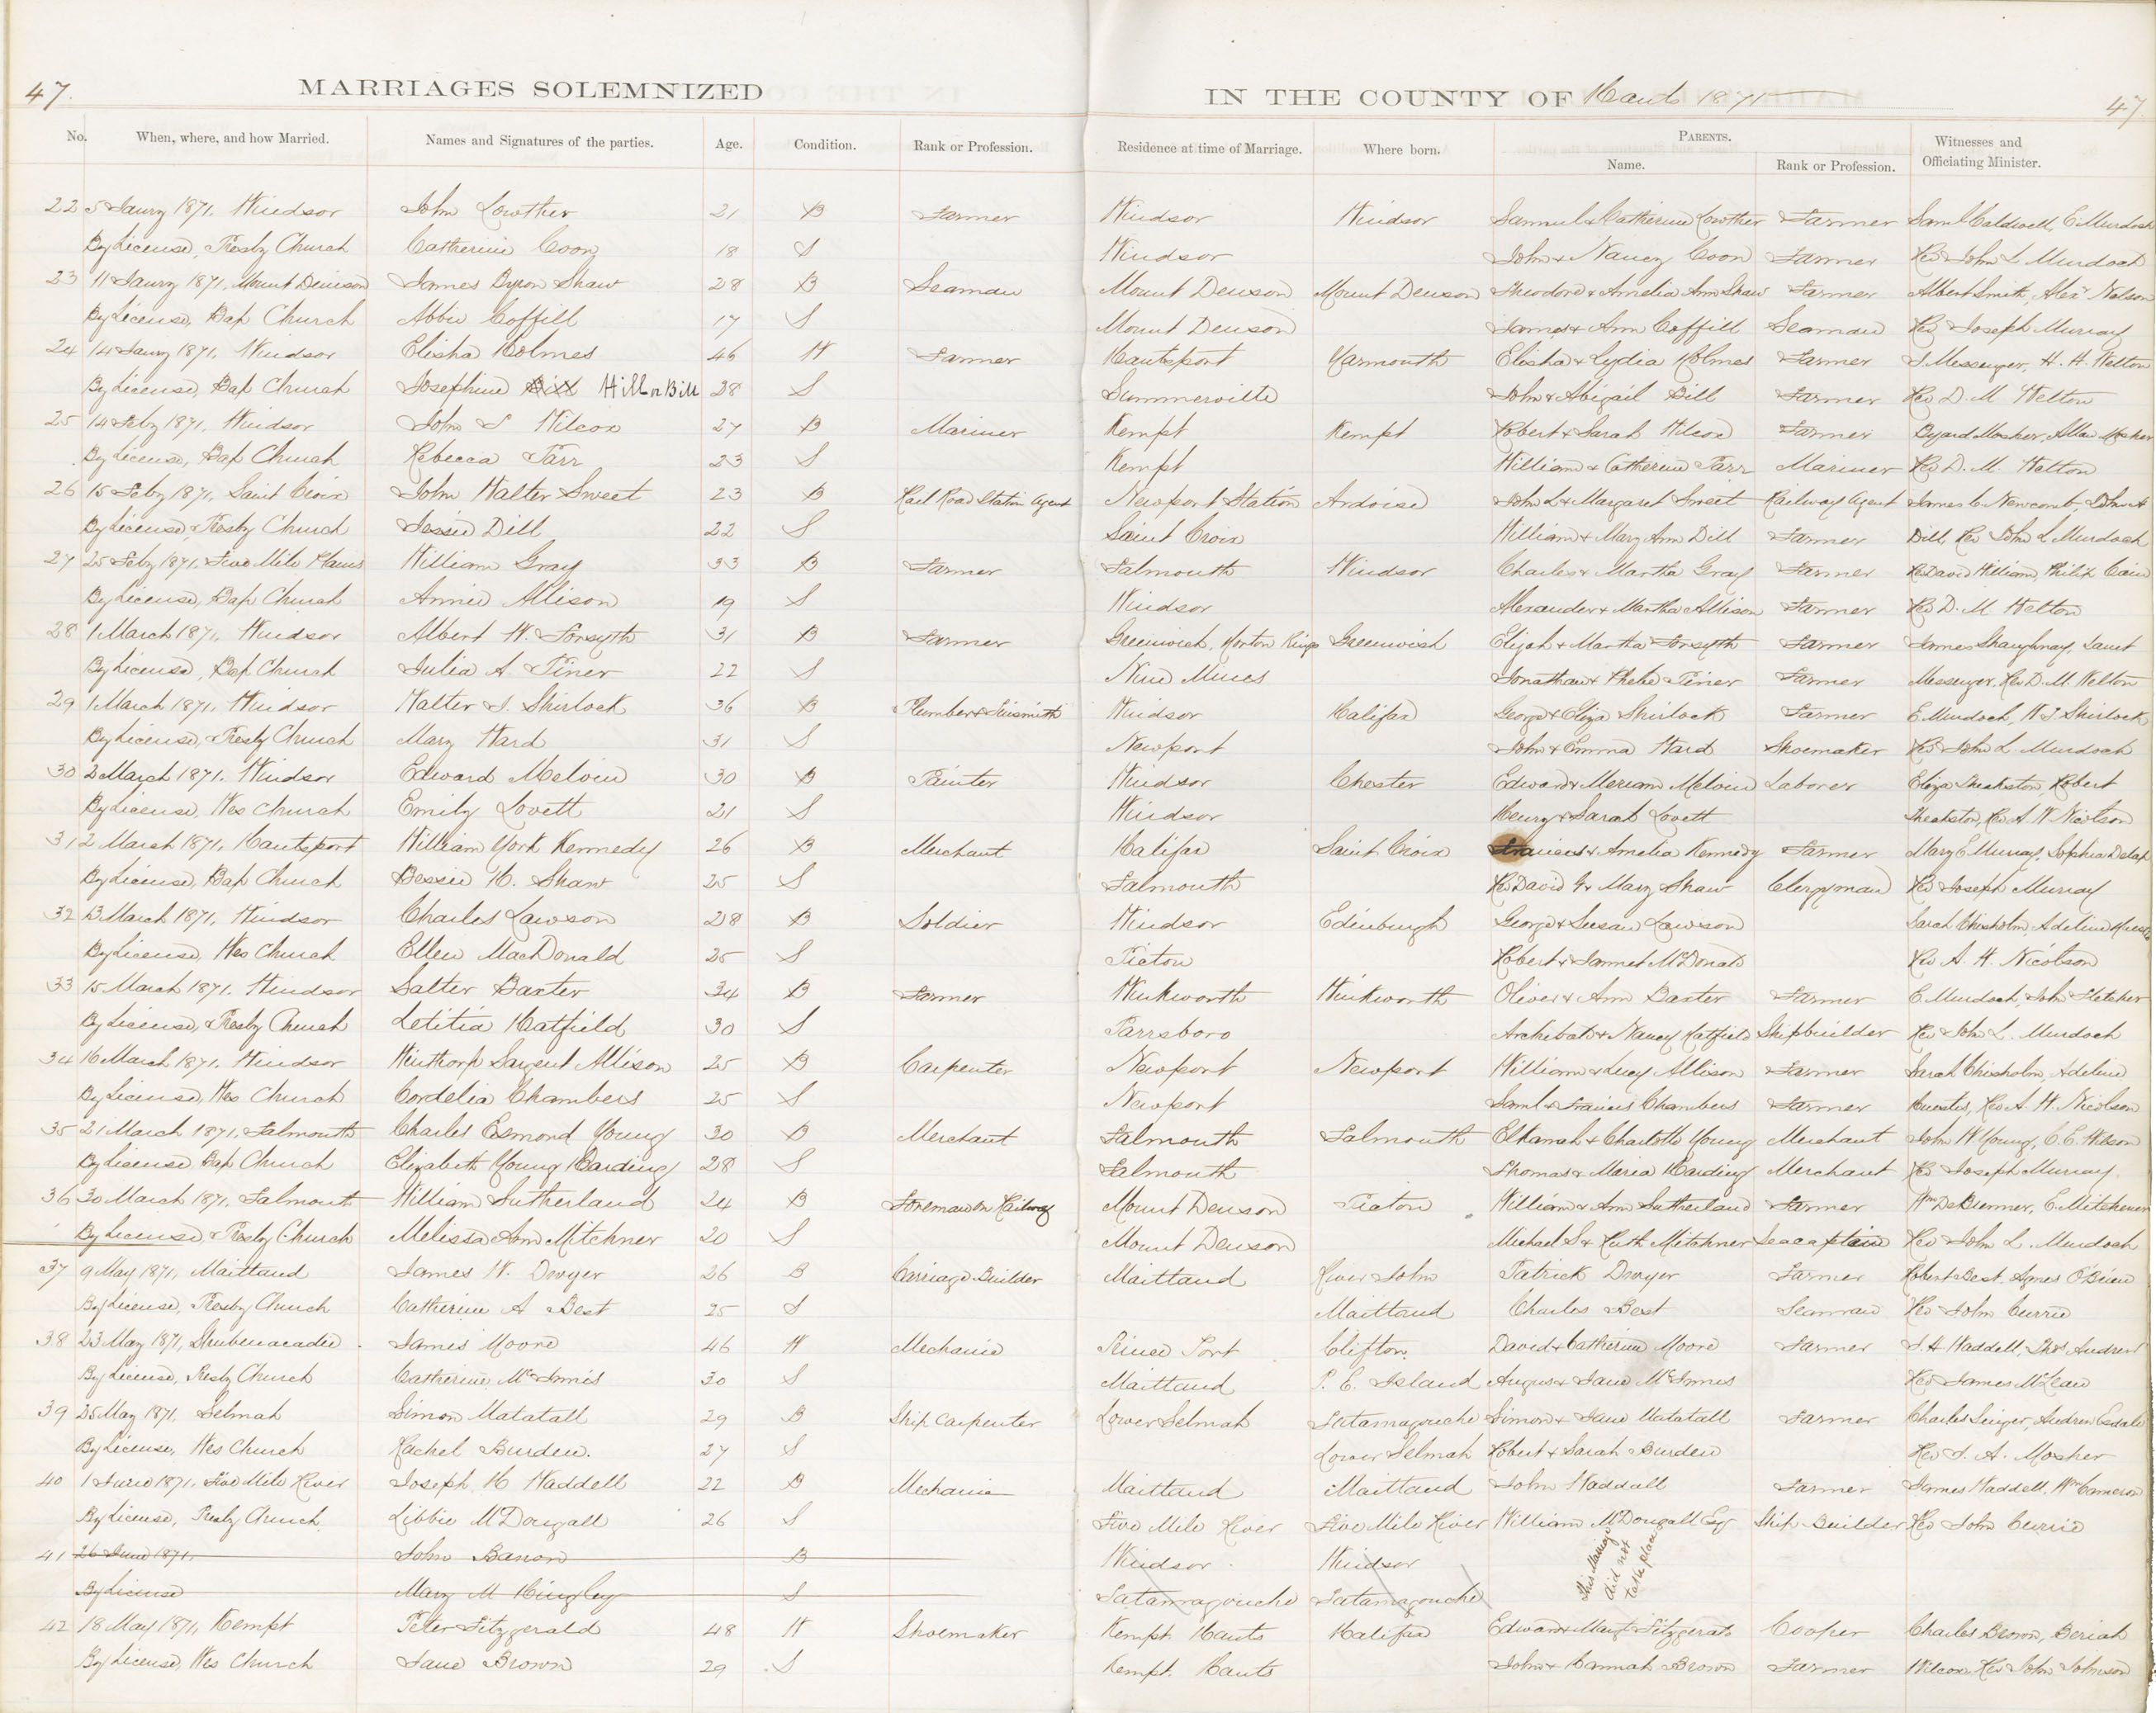 47.
MARRIAGES SOLEMNIZED IN THE COUNTY OF Hants 1871
47
No. When, where, and how Married. Names and Signatures of the parties. Age. Condition. Rank or Profession. Residence at time of Marriage. Where born. PARENTS. Name. Rank or Profession. Witnesses and Officiating Minister.
22 5 Jaury 1871. Windsor John Lowther 21 B Farmer Windsor Windsor Samuel & Catherine Lowther Farmer Saml Caldwell, E Murdoch
By License, Presby Church Catherine Coon 18 S Windsor John & Nancy Coon Farmer Rev John L Murdoch
23 11 Jaury 1871. Mount Denison James Byron Shaw 28 B Seaman Mount Denson Mount Denson Theodore & Amelia Ann Shaw Farmer Albert Smith, Alexr Nelson
By License, Bap Church Abbie Coffill 17 S Mount Denson James & Ann Coffill Seaman Rev Joseph Murray
24 14 Jaury 1871. Windsor Elisha Holmes 46 W Farmer Hantsport Yarmouth Elisha & Lydia Holmes Farmer J. Messenger, H. H. Welton
By License, Bap Church Josephine Bill Hill or Bill 28 S Summerville John & Abigail Bill Farmer Rev D. M Welton
25 14 Feby 1871. Windsor John S Wilcox 27 B Mariner Kempt Kempt Robert & Sarah Wilcox Farmer Byard Mosher, Allan Mosher
By License, Bap Church Rebecca Parr 23 S Kempt William & Catherine Parr Mariner Rev D. M. Welton
26 15 Feby 1871. Saint Croix John Walter Sweet 23 B Rail Road Station Agent Newport Station Ardoise John L & Margaret Sweet Railway Agent James C Newcomb, John A
By License, Presby Church Jessie Dill 22 S Saint Croix William & Mary Ann Dill Farmer Dill, Rev John L Murdoch
27 25 Feby 1871. Five Mile Plains William Gray 33 B Farmer Falmouth Windsor Charles & Martha Gray Farmer Rev David William, Philip Cain
By License, Bap Church Annie Allison 19 S Windsor Alexander & Martha Allison Farmer Rev D. M. Welton
28 1 March 1871. Windsor Albert W. Forsyth 31 B Farmer Greenwich, Horton Kings Greenwich Elijah & Martha Forsyth Farmer James Shaughnay, Janet
By License, Bap Church Julia A. Piner 22 S Nine Mines Jonathan & Phebe Piner Farmer Messenger, Rev D. M. Welton
29 1 March 1871. Windsor Walter J. Shirlock 36 B Plumber & Tinsmith Windsor Halifax George & Eliza Shirlock Farmer E Murdoch, W J Shirlock
By License, Presby Church Mary Ward 31 S Newport John & Emma Ward Shoemaker Rev John L Murdoch
30 2 March 1871. Windsor Edward Melvin 30 B Painter Windsor Chester Edward & Meriam Melvin Laborer Eliza Sheakston, Robert
By License, Wes Church Emily Lovett 21 S Windsor Henry & Sarah Lovett Sheakston, Rev A. W Nicolson
31 2 March 1871. Hantsport William York Kennedy 26 B Merchant Halifax Saint Croix Francis & Amelia Kennedy Farmer Mary E Murray, Sophia Delap
By License, Bap Church Bessie H. Shaw 25 S Falmouth Rev David & Mary Shaw Clergyman Rev Joseph Murray
32 13 March 1871. Windsor Charles Lawson 28 B Soldier Windsor Edinburgh George & Susan Lawson Sarah Chisholm, Adeline
By License, Wes Church Ellen MacDonald 25 S Picton Robert & Jannet McDonald Rev A. W. Nicolson
33 15 March 1871. Windsor Salter Baxter 34 B Farmer Winkworth Winkworth Oliver & Ann Baxter Farmer E. Murdoch, John Fletcher
By License, Presby Church Letitia Hatfield 30 S Parrsboro Archibald & Nancy Hatfield Shipbuilder Rev John L. Murdoch
34 16 March 1871. Windsor Winthorp Sargent Allison 25 B Carpenter Newport Newport William & Lucy Allison Farmer Sarah Chisholm, Adeline
By License, Wes Church Cordelia Chambers 25 S Newport Saml & Francis Chambers Farmer Rev A. W. Nicolson
35 21 March 1871. Falmouth Charles Esmond Young 30 B Merchant Falmouth Falmouth Elkanah & Charlotte Young Merchant John W Young, C. E. Wilson
By License Bap Church Elizabeth Young Harding 28 S Falmouth Thomas & Maria Harding Merchant Rev Joseph Murray.
36 30 March 1871. Falmouth William Sutherland 24 B Foreman on Railway Mount Denson Picton William & Ann Sutherland Farmer Wm DeBlemmer, C. Mitchener
By License, Presby Church Melissa Ann Mitchner 20 S Mount Denson Michael S & Ruth Mitchner Seacaptain Rev John L. Murdoch
37 9 May 1871, Maitland James W. Dwyer 26 B Carriage Builder Maitland River John Patrick Dwyer Farmer Robert Best, Agnes O'Brien
By License, Presby Church Catherine A Best 25 S Maitland Charles Best Seaman Rev John Currie
38 23 May 1871, Shubenacadie James Moore 46 W Mechanic Prince Port Clifton. David & Catherine Moore Farmer J. H Waddell, Thos Andrew
By License, Presby Church Catherine McInnis 30 S Maitland P. E. Island Angus & Jane McInnis Rev James McLean
39 25 May 1871, Selmah Simon Matatall 29 B Ship Carpenter Lower Selmah Tatamagouche Simon & Jane Matatall Farmer Charles Singer, Andrew Esdale
By License, Wes Church Rachel Burden. 27 S Lower Selmah Robert & Sarah Burden Rev J. A. Mosher
40 1 June 1871. Five Mile River Joseph H Waddell 22 B Mechanic Maitland Maitland John Waddell Farmer James Waddell, Wm Cameron
By License, Presby Church Libbie McDougall 26 S Five Mile River Five Mile River William McDougall Esq Ship Builder Rev John Currie
41 26 June 1871. John Baron B Windsor Windsor This Marriage did not take place
By License Mary M Hingley S Tatamagouche Tatamagouche
42 18 May 1871, Kempt Peter Fitzgerald 48 W Shoemaker Kempt Hants Halifax Edward & Margt Fitzgerald Cooper Charles Brown, Beriah
By License, Wes Church Jane Brown 29 S Kempt. Hants John & Hannah Brown Farmer Wilcox, Rev John Johnson